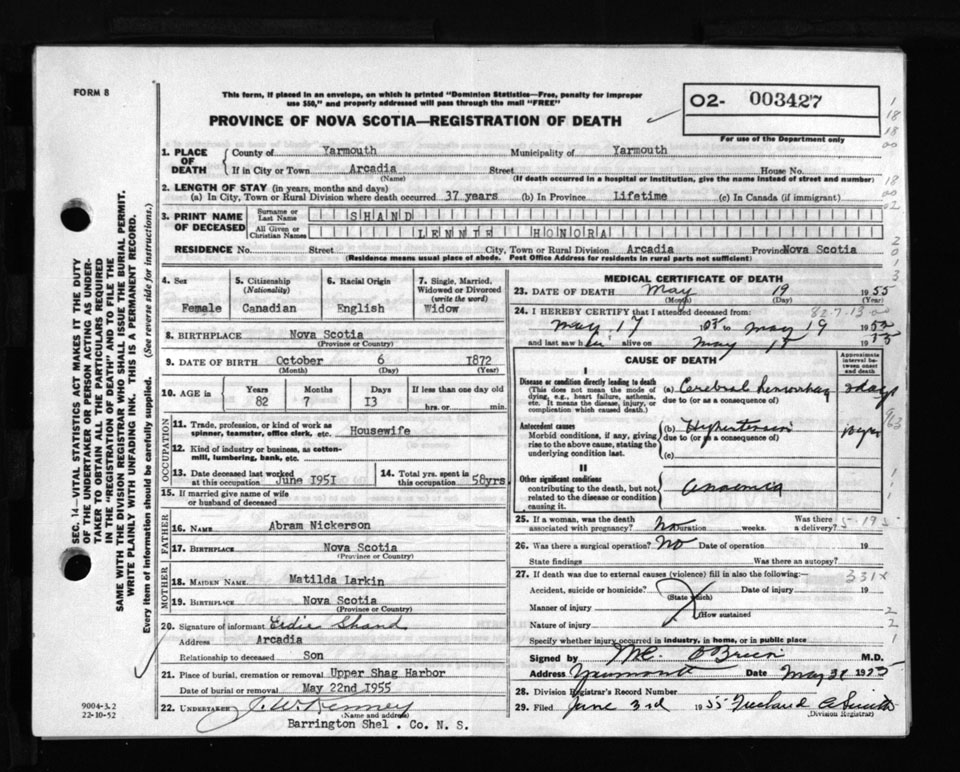 FORM 8
This form, if placed in an envelope, on which is printed "Dominion Statistics—Free, penalty for improper
use $50," and properly addressed will pass through the mail "FREE"
PROVINCE OF NOVA SCOTIA—REGISTRATION OF DEATH
O2- 003427
For use of the Department only
1. PLACE OF DEATH
County of Yarmouth Municipality of Yarmouth
If in City or Town Arcadia Street House No.
(Name) (If death occurred in a hospital or institution, give the name instead of street and number)
2. LENGTH OF STAY (in years, months and days)
(a) In City, Town or Rural Division where death occurred 37 years (b) In Province Lifetime (c) In Canada (if immigrant)
3. PRINT NAME OF DECEASED
Surname or Last Name SHAND
All Given or Christian Names LENNIE HONORA
RESIDENCE No. Street City, Town or Rural Division Arcadia Province Nova Scotia
(Residence means usual place of abode. Post Office Address for residents in rural parts not sufficient)
4. Sex
Female
5. Citizenship
(Nationality)
Canadian
6. Racial Origin
English
7. Single, Married,
Widowed or Divorced
(write the word)
Widow
8. BIRTHPLACE Nova Scotia
(Province or Country)
9. DATE OF BIRTH October 6 1872
(Month) (Day) (Year)
10. AGE in Years Months Days If less than one day old
82 7 13 hrs. or min.
OCCUPATION
11. Trade, profession, or kind of work as Housewife
spinner, teamster, office clerk, etc.
12. Kind of industry or business, as cotton-
mill, lumbering, bank, etc.
13. Date deceased last worked
at this occupation June 1951
14. Total yrs. spent in
this occupation 58yrs
15. If married give name of wife
or husband of deceased
FATHER
16. NAME Abram Nickerson
17. BIRTHPLACE Nova Scotia
(Province or Country)
MOTHER
18. MAIDEN NAME Matilda Larkin
19. BIRTHPLACE Nova Scotia
(Province or Country)
20. Signature of informant Shand
Address Arcadia
Relationship to deceased Son
21. Place of burial, cremation or removal Upper Shag Harbor
Date of burial or removal May 22nd 1955
22. UNDERTAKER J. W. Kenney
(Name and address)
Barrington Shel. Co. N. S.
9004-3.2
22-10-52
SEC. 14—VITAL STATISTICS ACT MAKES IT THE DUTY
OF THE UNDERTAKER OR PERSON ACTING AS UNDER-
TAKER TO OBTAIN ALL THE PARTICULARS REQUIRED
IN THE "REGISTRATION OF DEATH" AND TO FILE THE
SAME WITH THE DIVISION REGISTRAR WHO SHALL ISSUE THE BURIAL PERMIT.
WRITE PLAINLY WITH UNFADING INK. THIS IS A PERMANENT RECORD.
Every item of information should be carefully supplied. (See reverse side for instructions.)
MEDICAL CERTIFICATE OF DEATH
23. DATE OF DEATH May 19 1955
(Month) (Day) (Year)
24. I HEREBY CERTIFY that I attended deceased from: 82-7-13
May 17 to May 19 1955
and last saw h er May 19
CAUSE OF DEATH
Approximate
interval be-
tween onset
and death
I
Disease or condition directly leading to death
(This does not mean the mode of
dying, e.g., heart failure, asthenia,
etc. It means the disease, injury, or
complication which caused death.)
(a) Cerebral hemorrhage 2 days
due to (or as a consequence of)
Antecedent causes
Morbid conditions, if any, giving
rise to the above cause, stating the
underlying condition last.
(b) Hypertension 10 yrs
due to (or as a consequence of)
(c)
II
Other significant conditions
contributing to the death, but not
related to the disease or condition
causing it.
Anaemia
25. If a woman, was the death
associated with pregnancy? No Duration weeks. Was there
a delivery? 5-19-5
26. Was there a surgical operation? No Date of operation 19
State findings Was there an autopsy?
27. If death was due to external causes (violence) fill in also the following: 331x
Accident, suicide or homicide? Date of injury 19
(State which)
Manner of injury
(How sustained
Nature of injury
Specify whether injury occurred in industry, in home, or in public place
Signed by O'Brien M.D.
Address Yarmouth Date May 21 1955
28. Division Registrar's Record Number
29. Filed June 3rd 1955 Freeland A Smith
(Division Registrar)